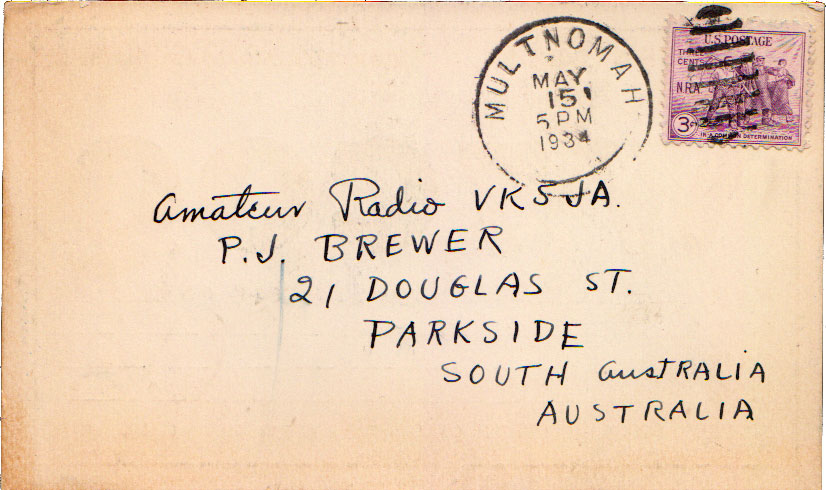 MULTNOMAH
MAY
15
5 PM
1934
U.S. POSTAGE
THREE
CENTS
N.R.A.
3¢
IN A COMMON DETERMINATION
Amateur Radio VK5JA.
P.J. BREWER
21 DOUGLAS ST.
PARKSIDE
SOUTH AUSTRALIA
AUSTRALIA